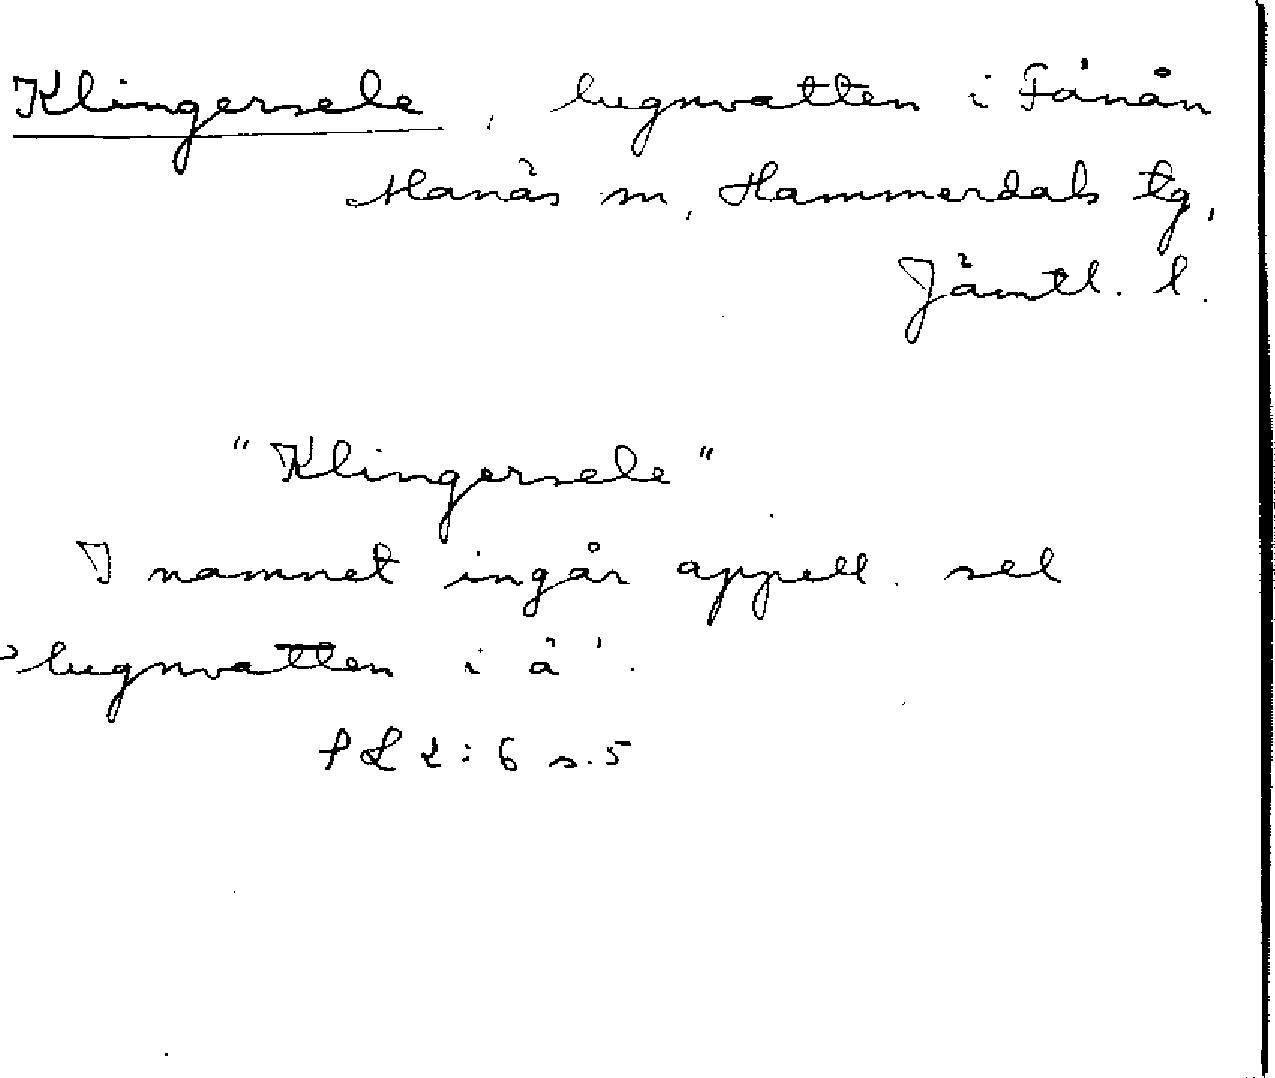 Klingersele, lugnvatten i Fånån
Alanäs sn, Hammerdals tg,
Jämtl. l.
"Klingersele"
I namnet ingår appell. sel
'lugnvatten i å'.
s. 5